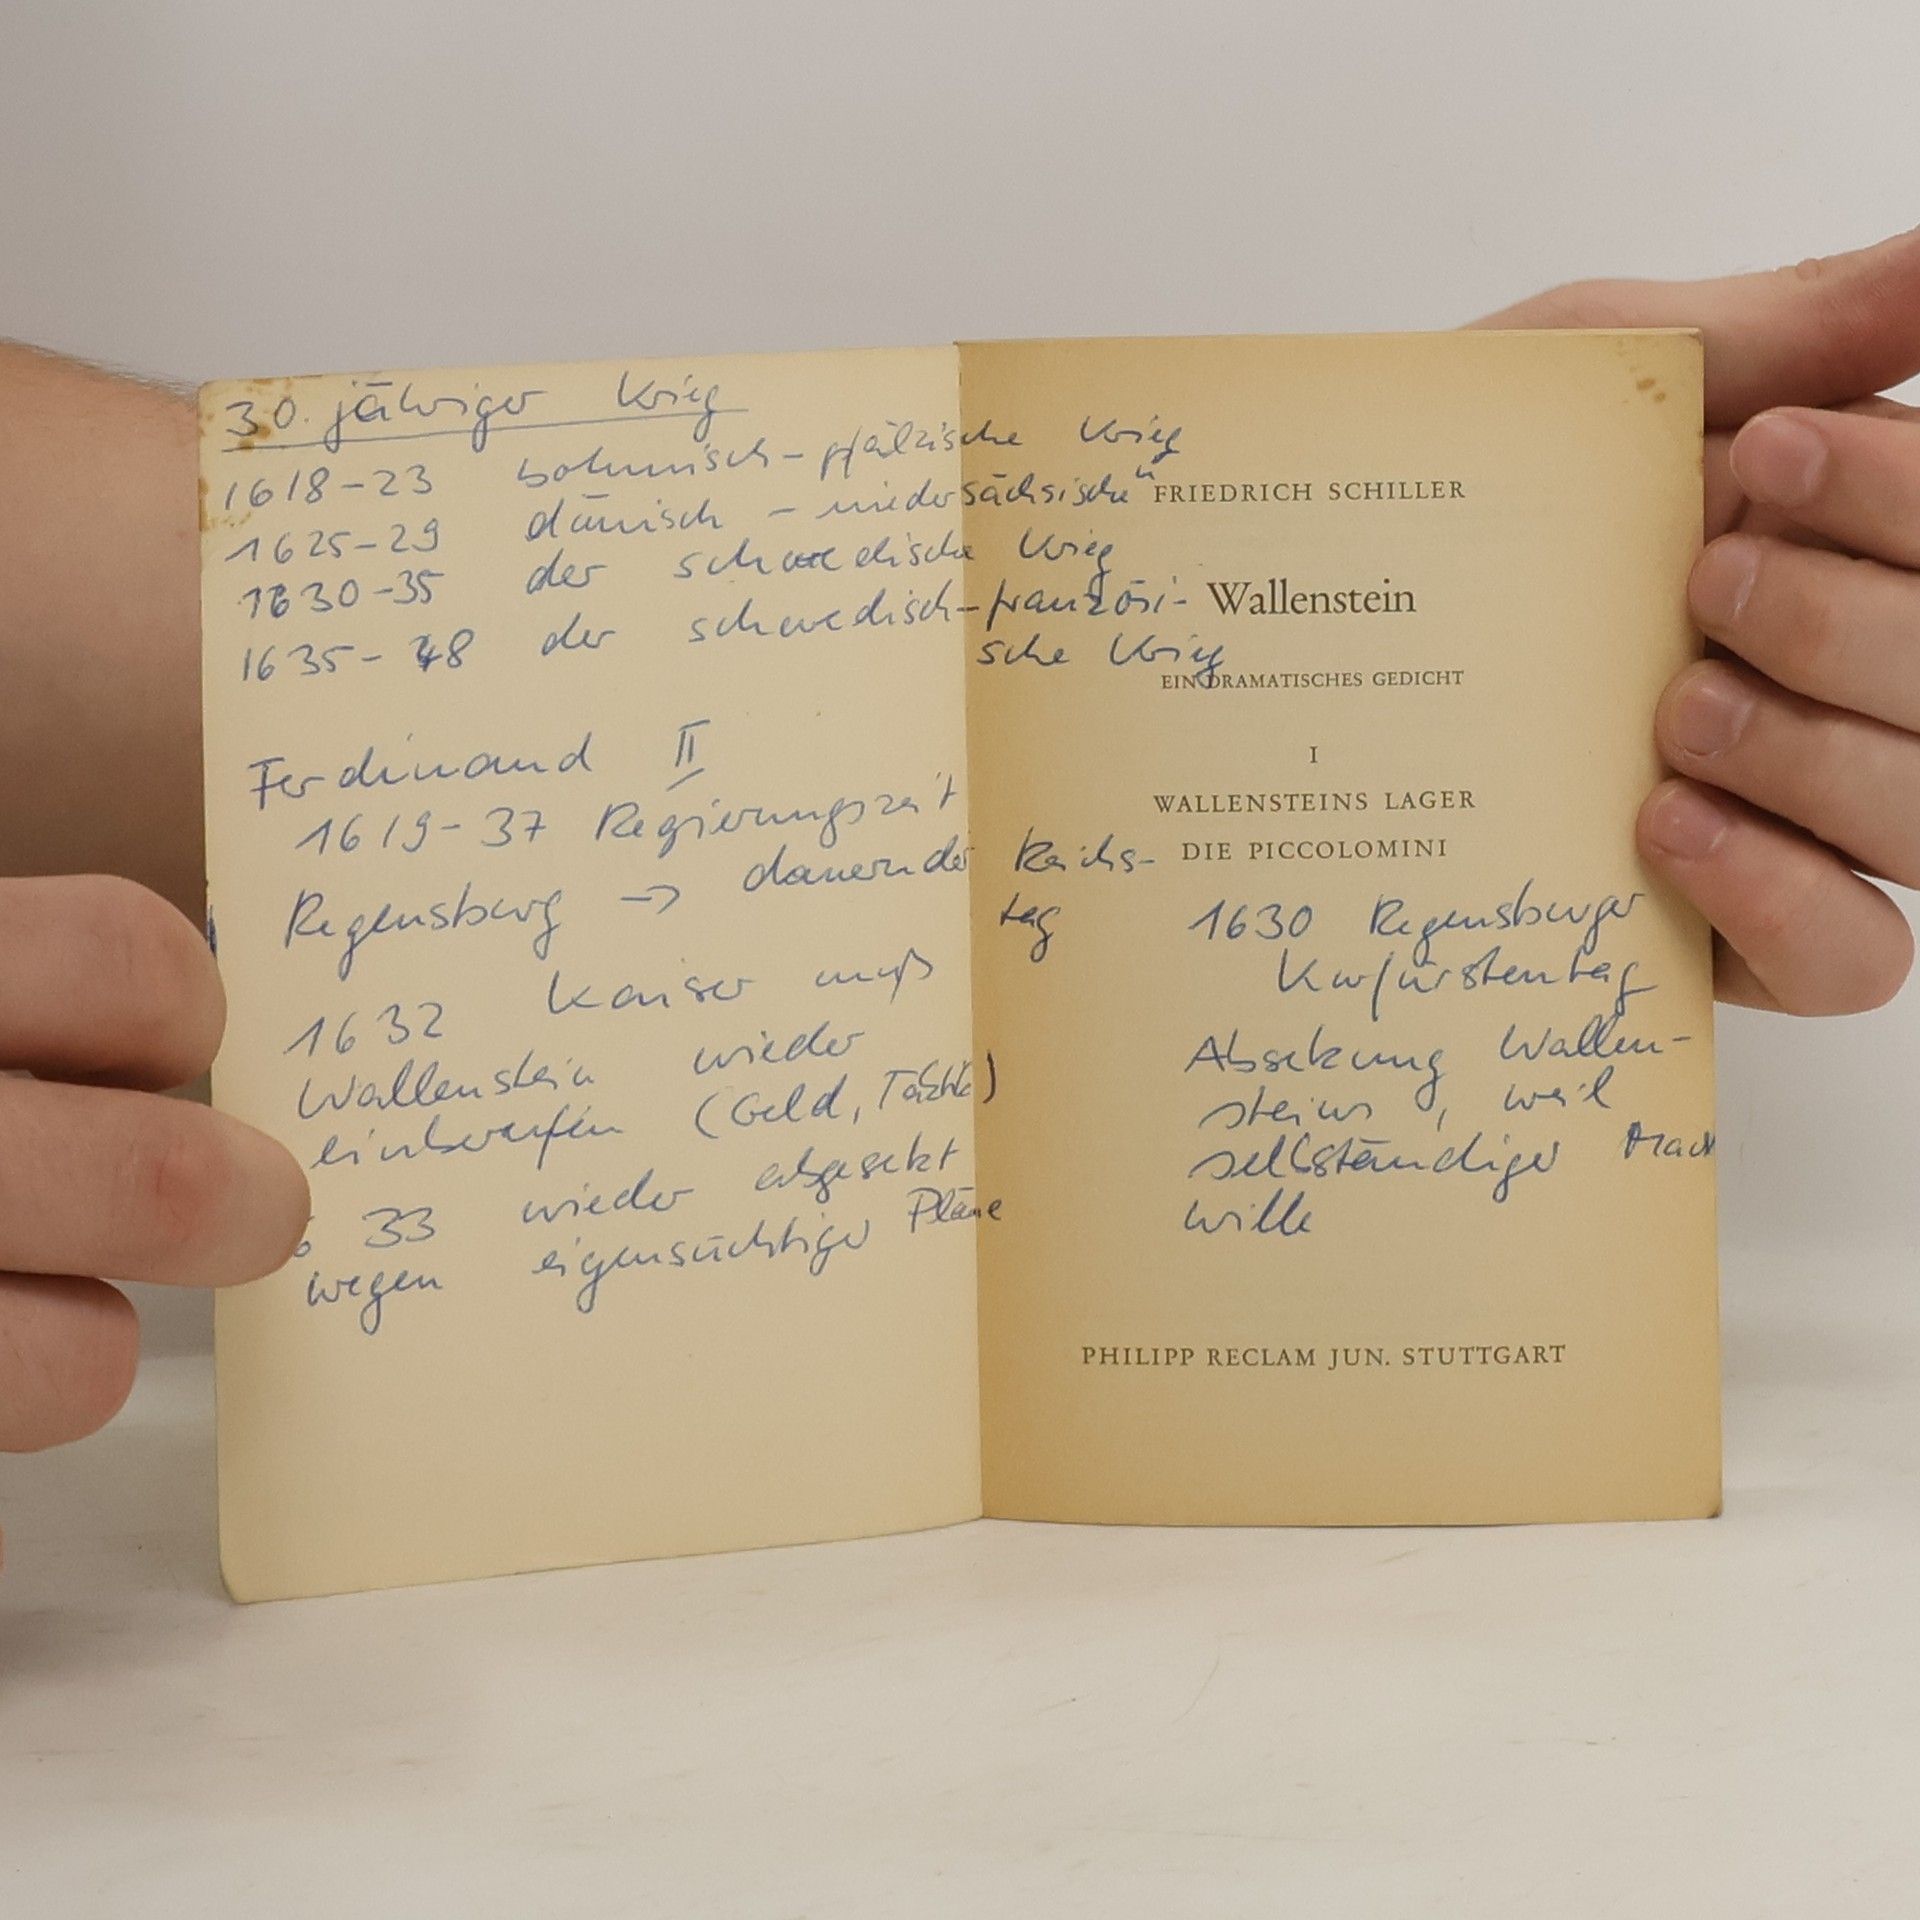 30. jähriger Krieg
1618-23 böhmisch-pfälzische Krieg
1625-29 dänisch - niedersächsische "
1630-35 der schwedische Krieg
1635-48 der schwedisch-französi-
sche Krieg
Ferdinand II
1619-37 Regierungszeit
Regensburg → dauernder Reichs-
tag
1632 Kaiser muß
Wallenstein wieder
einberufen (Geld, )
33 wieder abgesetzt
wegen eigensüchtiger Pläne
FRIEDRICH SCHILLER
Wallenstein
EIN DRAMATISCHES GEDICHT
I
WALLENSTEINS LAGER
DIE PICCOLOMINI
1630 Regensburger
Kurfürstentag
Absetzung Wallen-
steins, weil
selbständiger
Wille
PHILIPP RECLAM JUN. STUTTGART